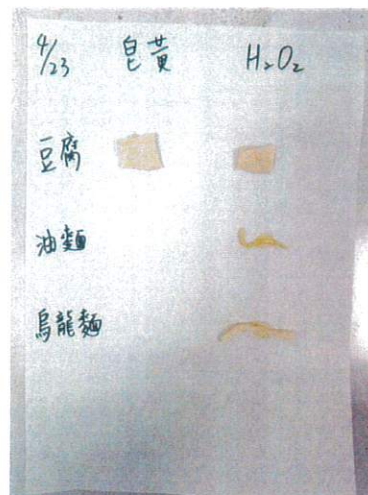 4/23 皂黃 H₂O₂
豆腐
油麵
烏龍麵